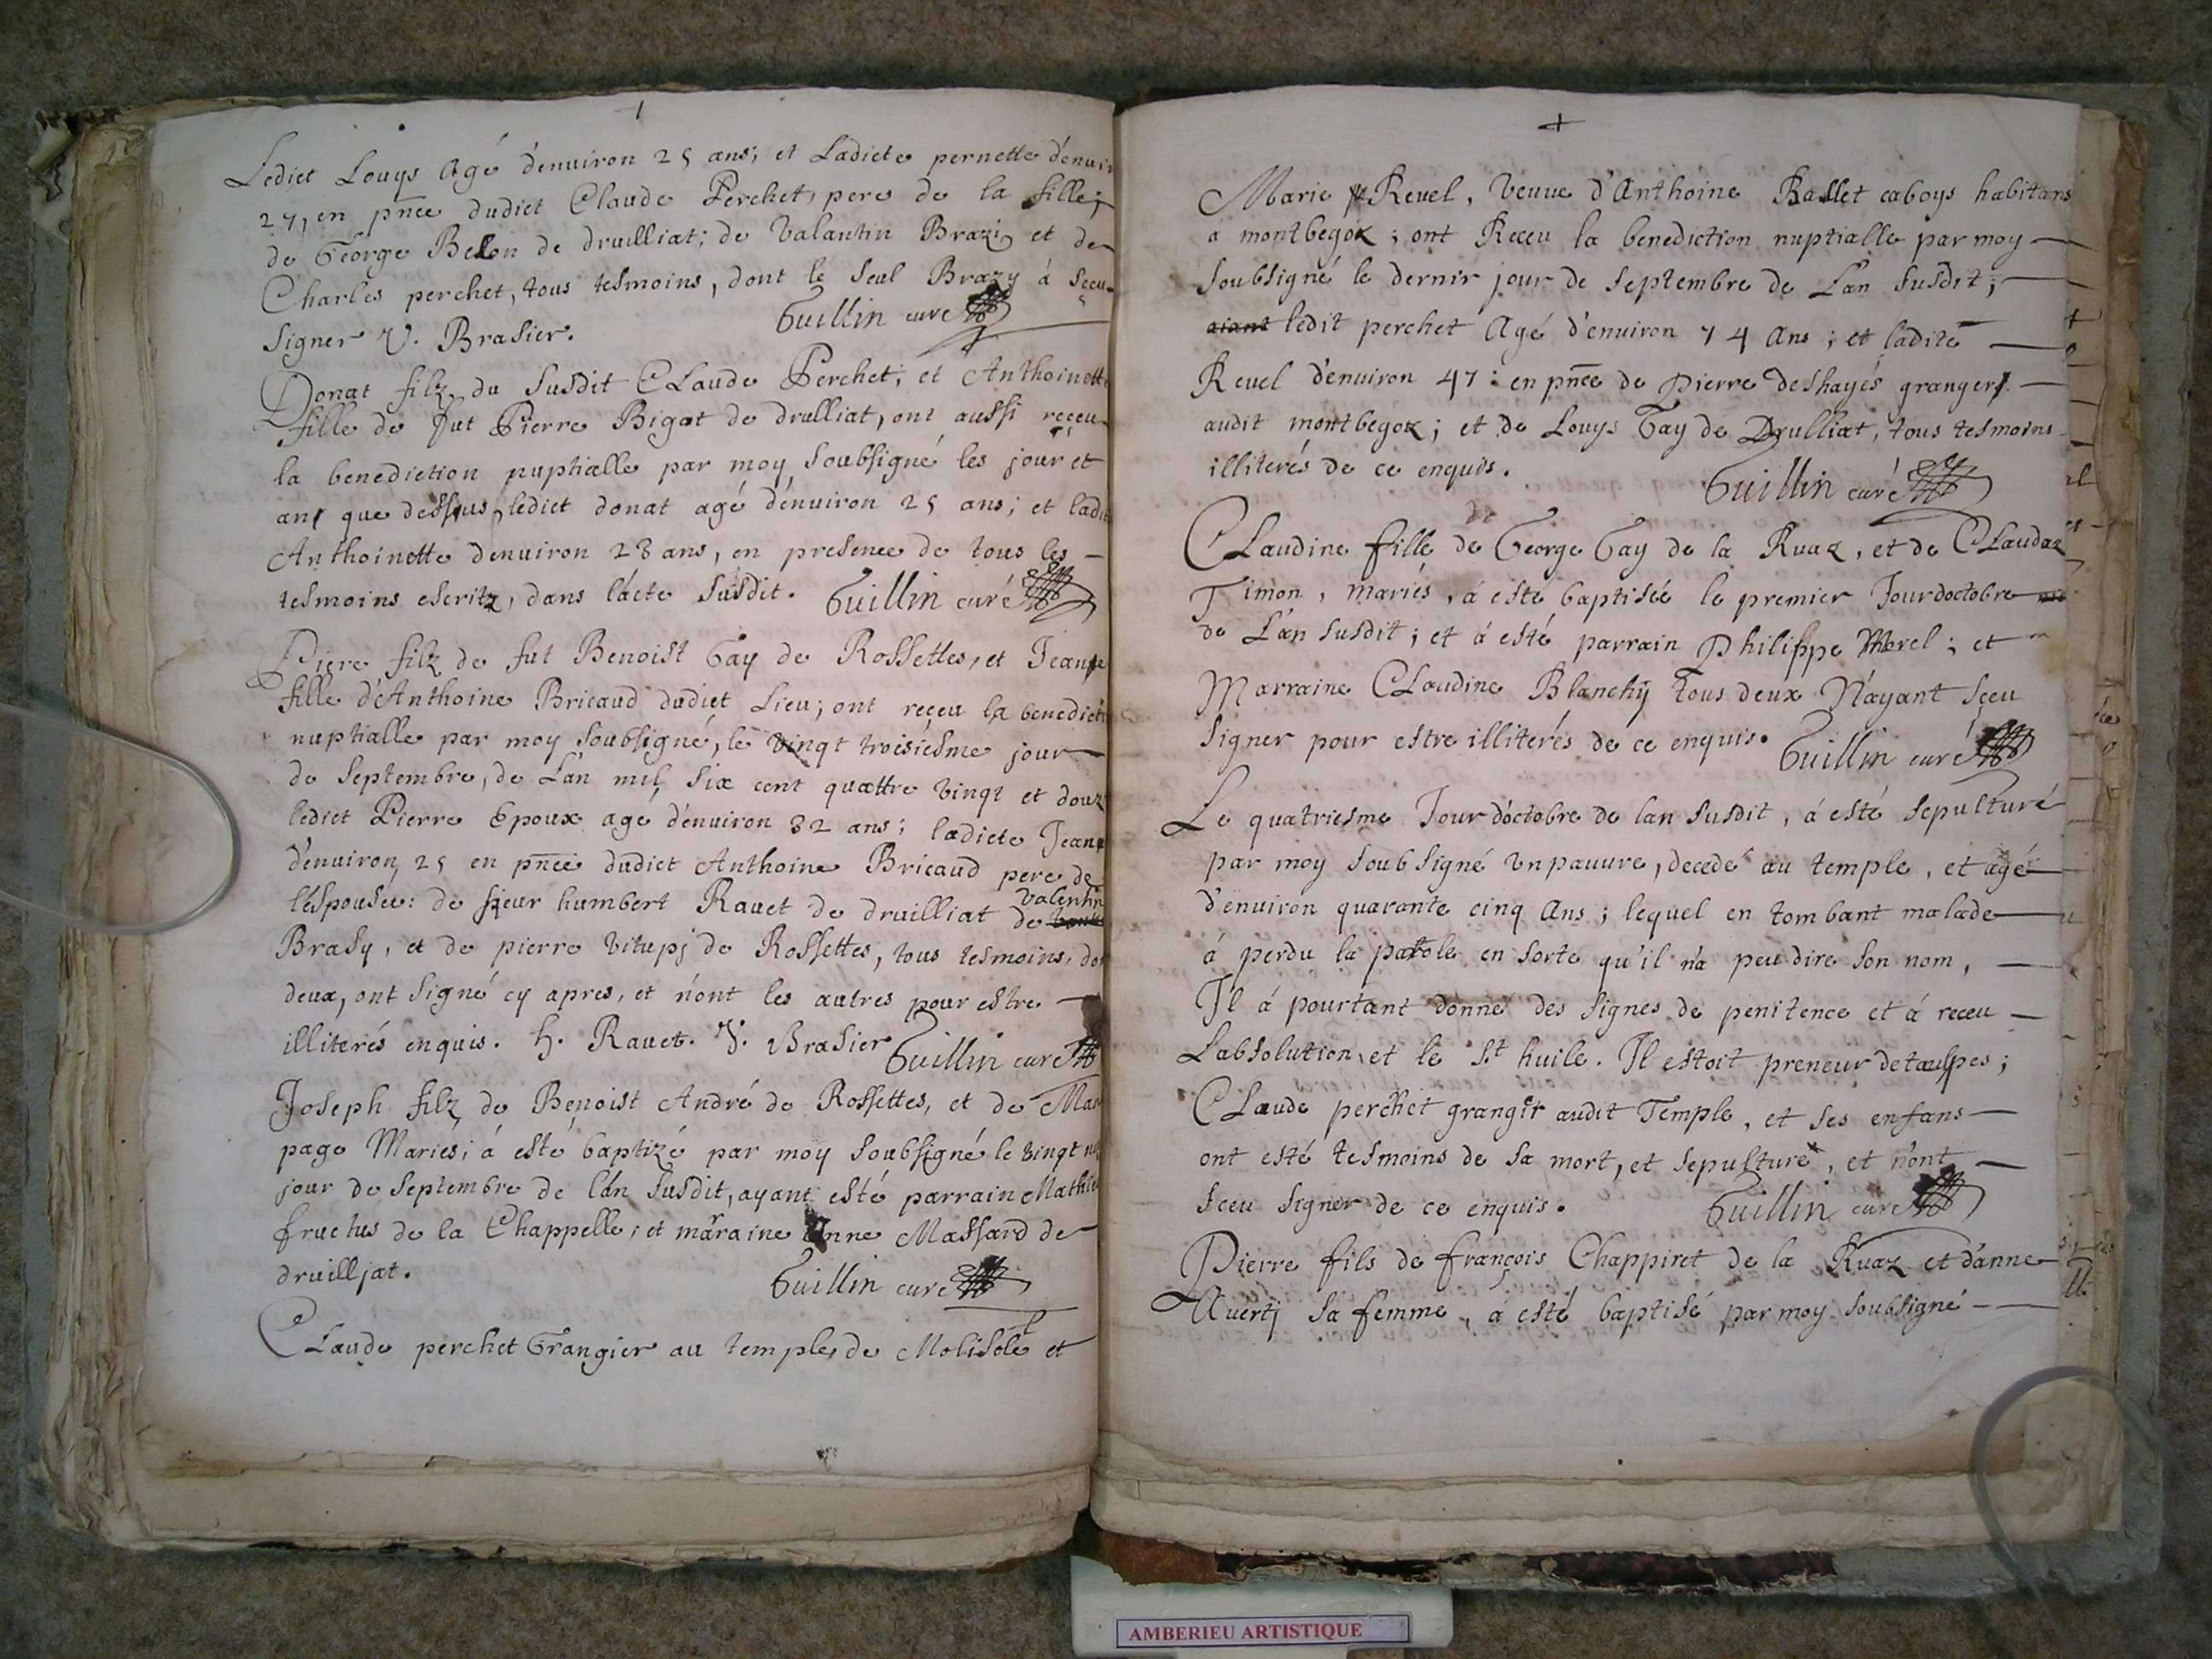 Lediet Louys Agé d'enuiron 25 ans; et Ladicte pernette d'enuir
27, en pñce dudict Claude Perchet, pere de la fille;
de George Belon de druilliat; de Valantin Brazi, et de
Charles perchet, tous tesmoins, dont le seul Brazy à sçeu
signer V. Brasier. Guillin curé
Donat filz du susdit Claude Perchet; et Anthoinette
fille de fut Pierre Bigot de drulliat, ont aussi reçeu
la benediction nuptialle par moy soubsigné les jour et
an que dessus, ledict donat agé d'enuiron 25 ans; et ladit
Anthoinette denuiron 28 ans, en presence de tous les
tesmoins escritz, dans l'acte susdit. Guillin curé
Piere filz de fut Benoist Gay de Rossettes, et Jeane
fille d'Anthoine Bricaud dudict Lieu; ont reçeu la benedict
nuptialle par moy soubsigné, le vingt troisiesme jour
de septembre, de L'an mil six cent quattre vingt et douz
ledict Pierre Epoux agé d'enuiron 32 ans; ladicte Jeane
d'enuiron 25 en pñce dudict Anthoine Bricaud pere de
l'espouse: de sieur humbert Rauet de druilliat de valentin
Brasy, et de pierre vitupj de Rossettes, tous tesmoins, don
deux, ont signé cy apres, et n'ont les autres pour estre
illiterés enquis. h. Rauet. V. Brasier Guillin curé
Joseph filz de Benoist André de Rossettes, et de Mar
page Mariés; à esté baptizé par moy soubsigné le vingt
jour de septembre de l'an susdit, ayant esté parrain Mathie
fructus de la Chappelle; et marraine Anne Massard de
druilljat. Guillin curé
Claude perchet Grangier au temple, de Molisole et
Marie Reuel, veuue d'Anthoine Ballet caboys habitans
a montbegoz; ont Receu la benediction nuptialle par moy
soubsigné le dernir jour de septembre de L'an susdit;
aiant ledit perchet Agé d'enuiron 74 Ans; et ladite
Reuel d'enuiron 47: en pñce de Pierre Deshayés granger
audit montbegoz; et de Louys Gay de Drulliat, tous tesmoins
illiterés de ce enquis. Guillin curé
Claudine fille de George Gay de la Ruaz, et de Claudaz
Timon, mariés, à esté baptisée le premier Jour doctobre
de L'an susdit; et à esté parrain Philippe Morel; et
Marraine Claudine Blanchy tous deux N'ayant sçeu
signer pour estre illiterés de ce enquis. Guillin curé
Le quatriesme Jour d'octobre de lan susdit, á esté sepulturé
par moy soubsigné vn pauure, decedé au temple, et agé
d'enuiron quarante cinq Ans; lequel en tombant malade
á perdu la parole en sorte qu'il n'a peu dire son nom,
Il á pourtant donné des signes de penitence et á receu
L'absolution, et le St huile. Il estoit preneur de taulpes;
Claude perchet grangir audit Temple, et ses enfans
ont esté tesmoins de sa mort, et sepulture, et n'ont
sceu signer de ce enquis. Guillin curé
Pierre fils de françois Chappiret de la Ruaz et d'anne
Auertj sa femme, á esté baptisé par moy soubsigné
AMBERIEU ARTISTIQUE